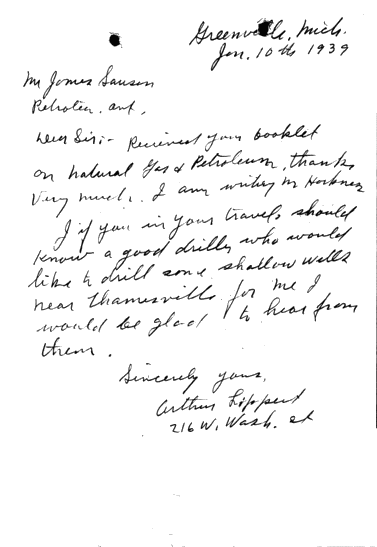 Greenville, Mich.
Jan. 10th 1939
Mr James Sauson
Petrolea. ont,
Dear Sir:- Received your booklet
on natural Gas & Petroleum, thanks
Very much. I am writing Mr Harkness
If you in your travels should
know a good driller who would
like to drill some shallow wells
near Thamesville for me I
would be glad to hear from
them.
Sincerely yours,
Arthur Lippert
216 W. Wash. st